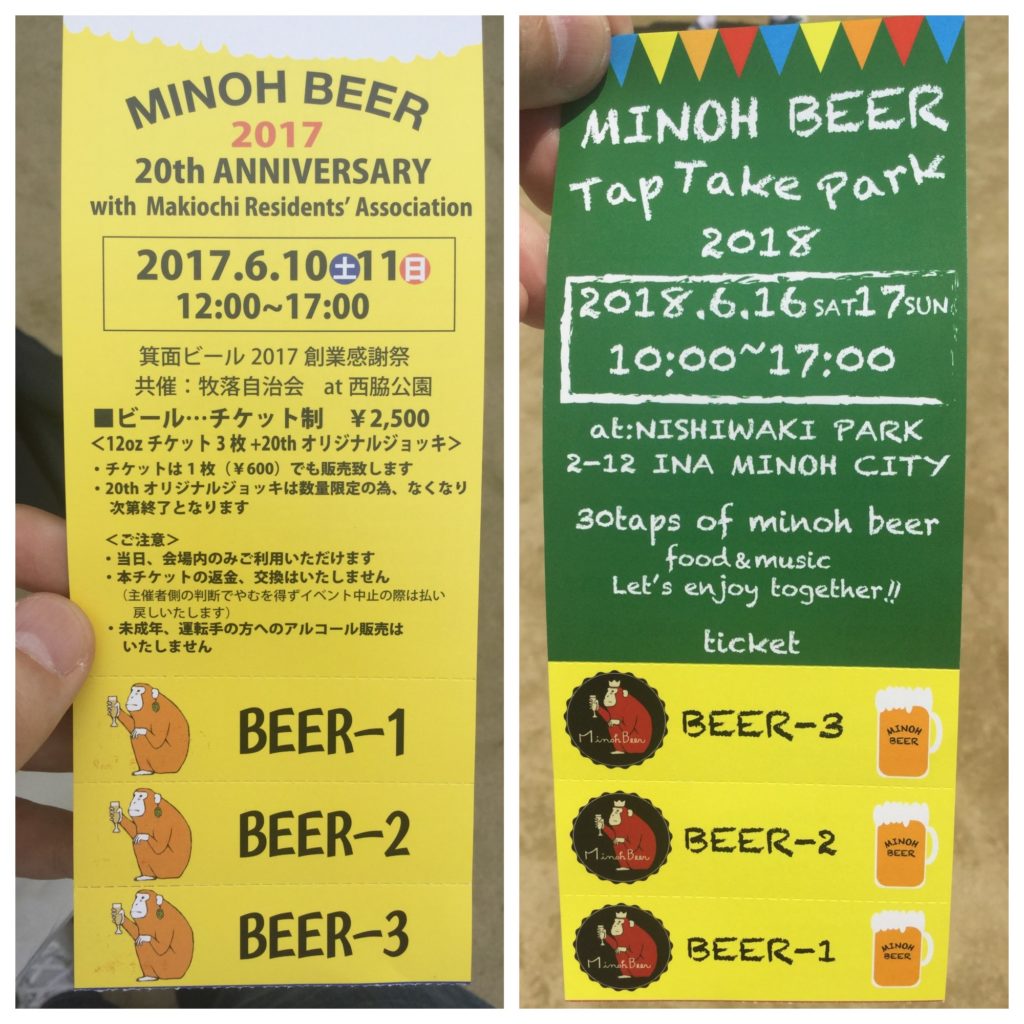 MINOH BEER
2017
20th ANNIVERSARY
with Makiochi Residents' Association
2017.6.10土11日
12:00~17:00
箕面ビール 2017 創業感謝祭
共催：牧落自治会 at 西脇公園
■ビール…チケット制 ￥2,500
＜12oz チケット 3 枚 +20th オリジナルジョッキ＞
・チケットは 1 枚（￥600）でも販売致します
・20th オリジナルジョッキは数量限定の為、なくなり
次第終了となります
＜ご注意＞
・当日、会場内のみご利用いただけます
・本チケットの返金、交換はいたしません
（主催者側の判断でやむを得ずイベント中止の際は払い
戻しいたします）
・未成年、運転手の方へのアルコール販売は
いたしません
BEER-1
BEER-2
BEER-3
MINOH BEER
Tap Take Park
2018
2018.6.16 SAT 17 SUN
10:00~17:00
at:NISHIWAKI PARK
2-12 INA MINOH CITY
30taps of minoh beer
food&music
Let's enjoy together!!
ticket
Minoh Beer
BEER-3
MINOH
BEER
Minoh Beer
BEER-2
MINOH
BEER
Minoh Beer
BEER-1
MINOH
BEER